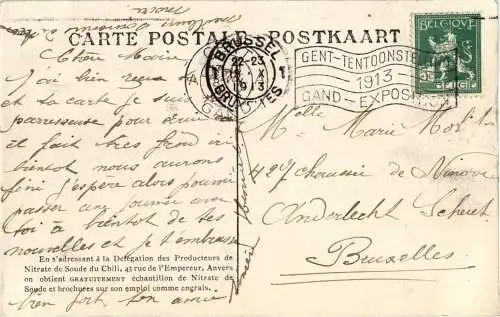 CARTE POSTALE - POSTKAART
BRUSSEL
22-23
X
1913
BRUXELLES
GENT-TENTOONSTELLING
1913
GAND-EXPOSITION
BELGIQUE
5
BELGIË
Chère Marie
J'ai bien reçu
ta carte je suis
paresseuse pour écrire
il fait très froid
bientôt nous aurons
fini j'espère alors pouvoir
passer une journée avec
toi à bientôt de tes
nouvelles et je t'embrasse
bien fort ton amie
En s'adressant à la Délégation des Producteurs de
Nitrate de Soude du Chili, 43 rue de l'Empereur, Anvers
on obtient GRATUITEMENT échantillon de Nitrate de
Soude et brochures sur son emploi comme engrais.
Mlle Marie
427 chaussée de Ninove
Anderlecht Scheut
Bruxelles